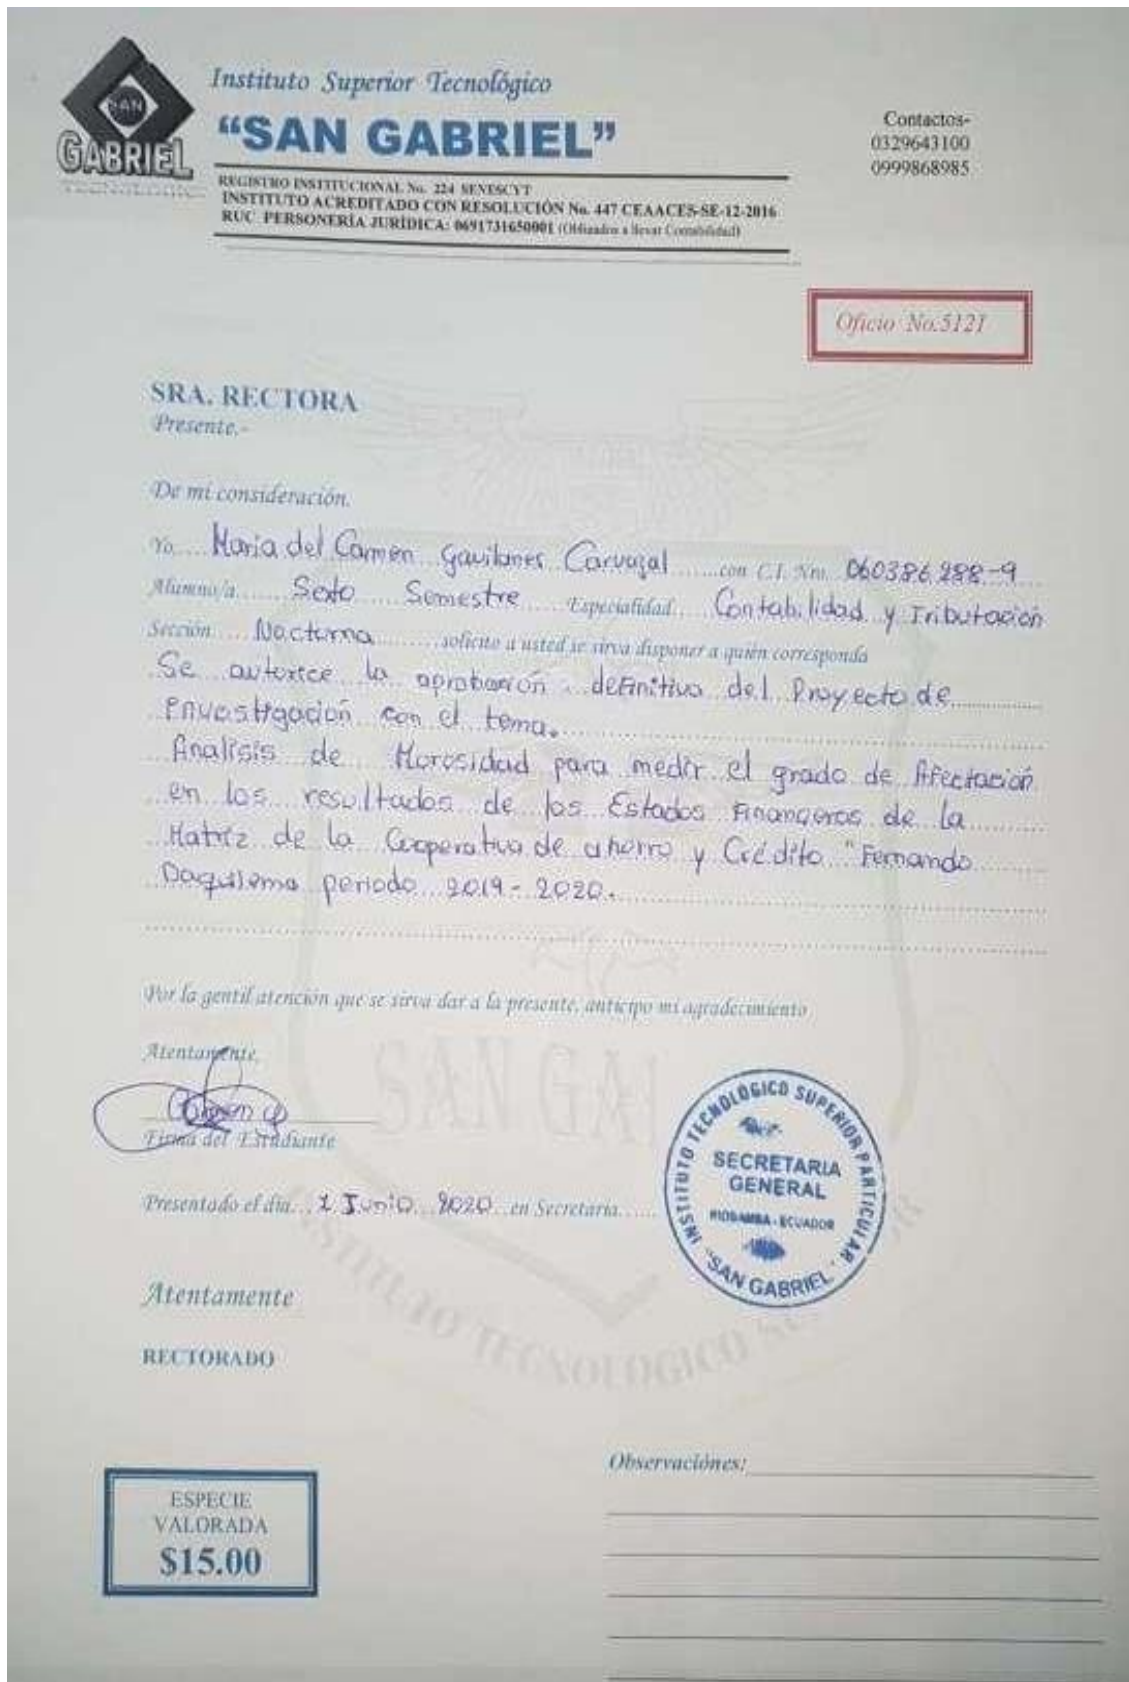 SAN
GABRIEL
TECNOLÓGICO
Instituto Superior Tecnológico
“SAN GABRIEL”
REGISTRO INSTITUCIONAL No. 224 SENESCYT
INSTITUTO ACREDITADO CON RESOLUCIÓN No. 447 CEAACES-SE-12-2016
RUC PERSONERÍA JURÍDICA: 0691731650001 (Obligados a llevar Contabilidad)
Contactos-
0329643100
0999868985
Oficio No.5121
SRA. RECTORA
Presente.-
De mi consideración.
Yo.... Maria del Carmen Gavilanes Carvajal ......con C.I. Nro. 060386288-9
Alumno/a....... Sexto Semestre Especialidad.... Contabilidad y Tributación
Sección.... Nocturna ........solicito a usted se sirva disponer a quién corresponda
Se autorice la aprobación definitiva del Proyecto de
Envestigación con el tema.
Analisis de Morosidad para medir el grado de Afectación
en los resultados de los Estados Financieros de la
Matriz de la Cooperativa de ahorro y Crédito "Fernando
Daquilema periodo 2019-2020.
Por la gentil atención que se sirva dar a la presente, anticipo mi agradecimiento
Atentamente,
Carmen G
Firma del Estudiante
Presentado el día... 1 Junio 2020 en Secretaría......
INSTITUTO TECNOLÓGICO SUPERIOR PARTICULAR
SECRETARIA
GENERAL
RIOBAMBA - ECUADOR
"SAN GABRIEL"
Atentamente
RECTORADO
ESPECIE
VALORADA
$15.00
Observaciónes:
SAN GA
INSTITUTO TECNOLOGICO